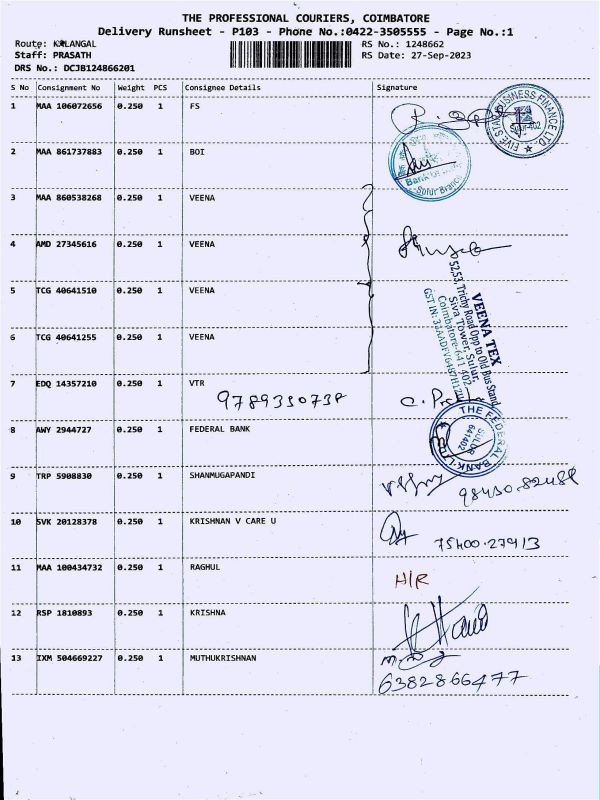 THE PROFESSIONAL COURIERS, COIMBATORE
Delivery Runsheet - P103 - Phone No.:0422-3505555 - Page No.:1
Route: KALANGAL
RS No.: 1248662
Staff: PRASATH
RS Date: 27-Sep-2023
DRS No.: DCJB124866201
S No Consignment No Weight PCS Consignee Details Signature
1 MAA 106072656 0.250 1 FS
FIVE STAR BUSINESS FINANCE LTD.
2 MAA 861737883 0.250 1 BOI
Sulur Branch
3 MAA 860538268 0.250 1 VEENA
4 AMD 27345616 0.250 1 VEENA
5 TCG 40641510 0.250 1 VEENA
VEENA TEX
52,53, Trichy Road Opp to Old Bus Stand
Siva Tower, Sulur,
Coimbatore-641 402
6 TCG 40641255 0.250 1 VEENA
7 EDQ 14357210 0.250 1 VTR
9789330738
8 AWY 2944727 0.250 1 FEDERAL BANK
THE FEDERAL BANK
SULUR
641402
9 TRP 5908830 0.250 1 SHANMUGAPANDI
10 SVK 20128378 0.250 1 KRISHNAN V CARE U
75400.27913
11 MAA 100434732 0.250 1 RAGHUL
H/R
12 RSP 1810893 0.250 1 KRISHNA
13 IXM 504669227 0.250 1 MUTHUKRISHNAN
6382866477